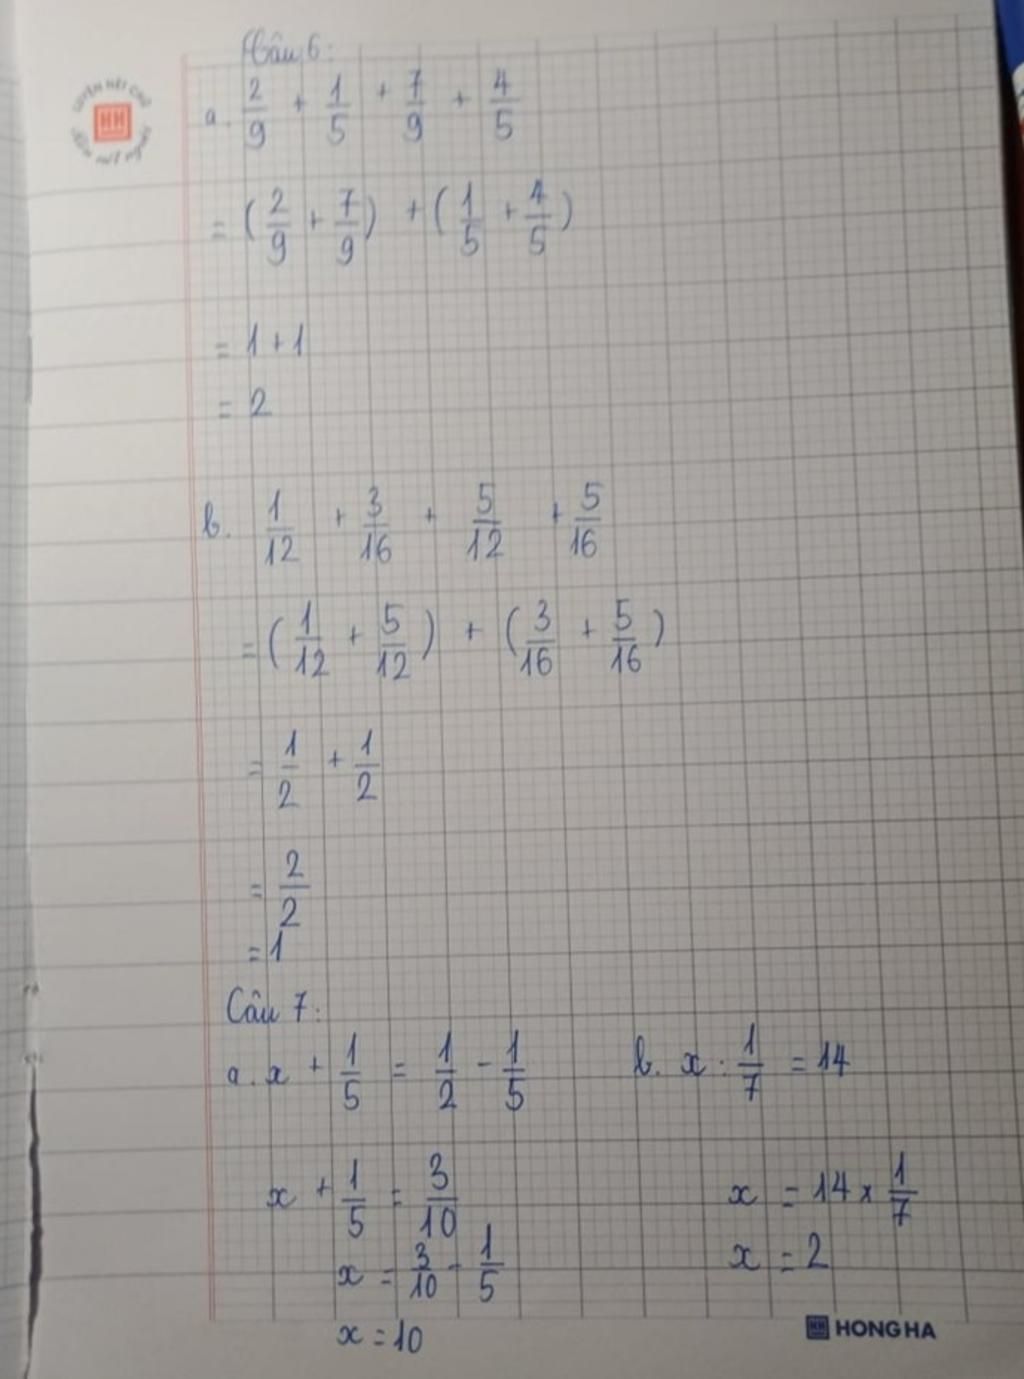 Câu 6:
a. 2/9 + 1/5 + 7/9 + 4/5
= (2/9 + 7/9) + (1/5 + 4/5)
= 1 + 1
= 2
b. 1/12 + 3/16 + 5/12 + 5/16
= (1/12 + 5/12) + (3/16 + 5/16)
= 1/2 + 1/2
= 2/2
= 1
Câu 7:
a. x + 1/5 = 1/2 - 1/5
x + 1/5 = 3/10
x = 3/10 - 1/5
x = 10
b. x : 1/7 = 14
x = 14 x 1/7
x = 2
HONG HA
LUYỆN NÉT CHỮ